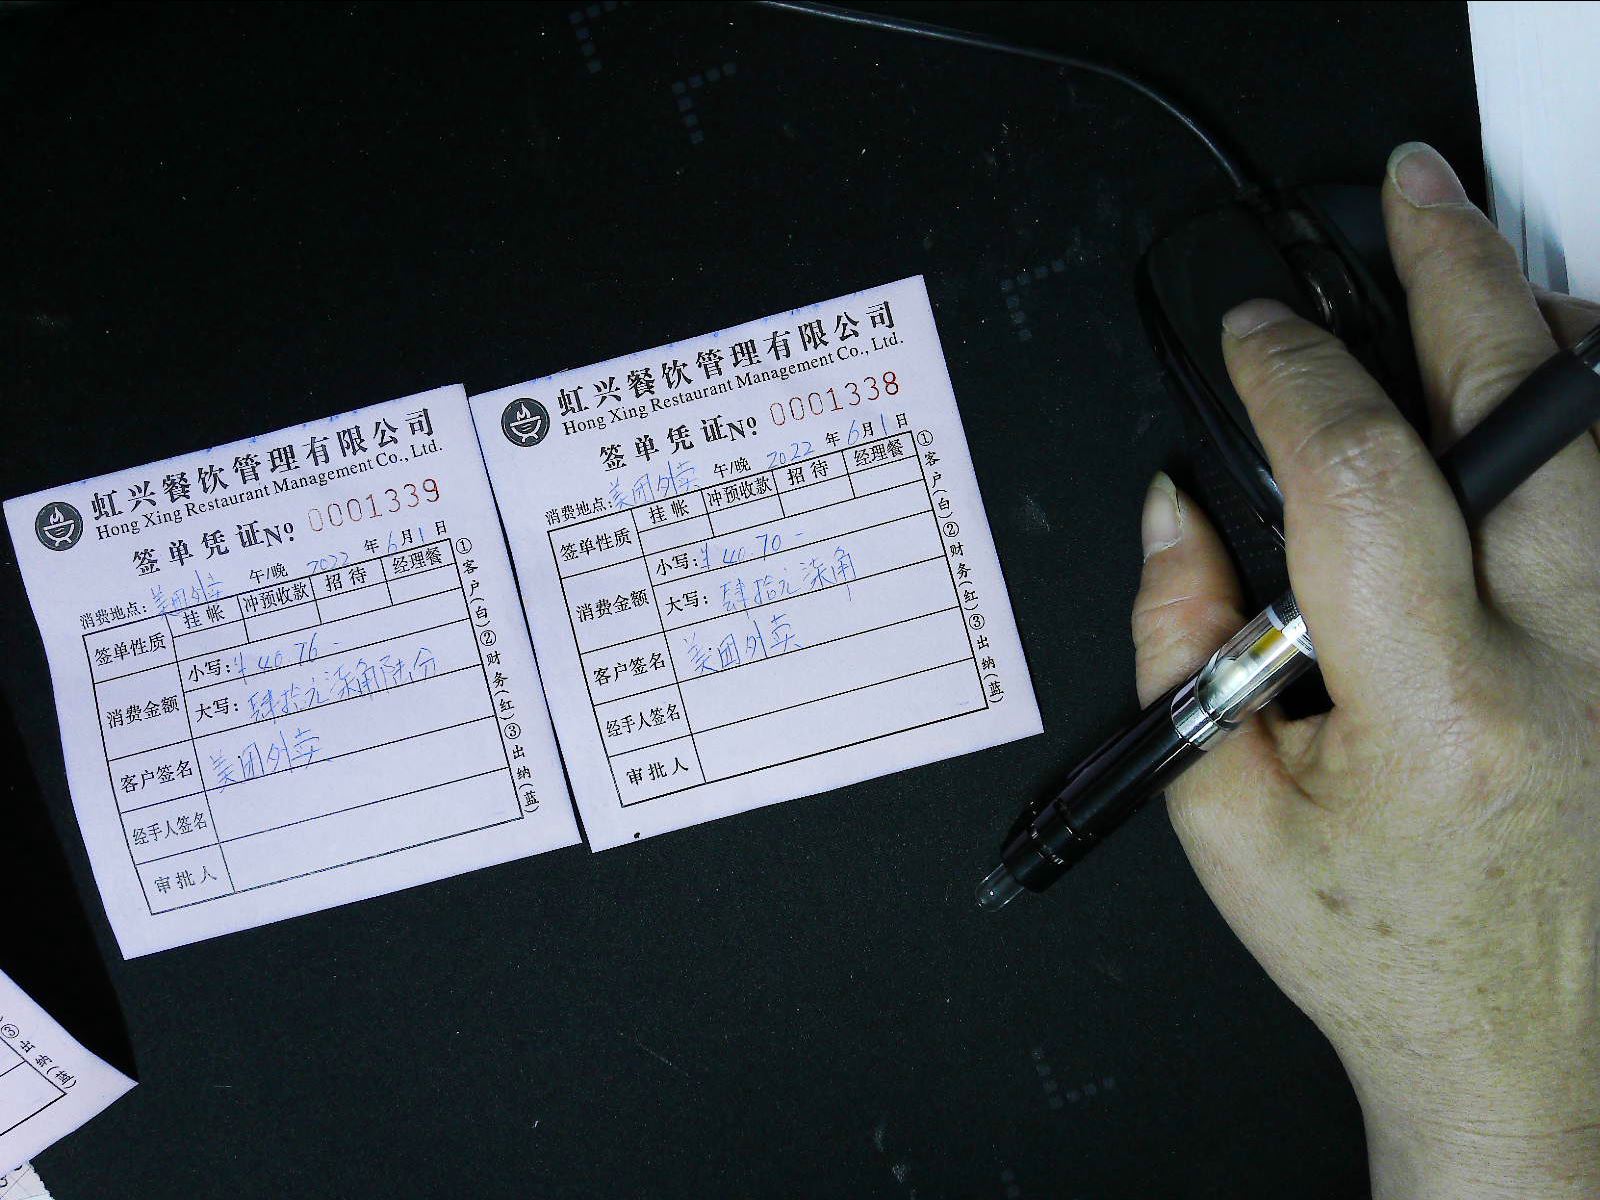 虹兴餐饮管理有限公司
Hong Xing Restaurant Management Co., Ltd.
签单凭证№: 0001339
消费地点: 美团外卖 午/晚 2022 年 6 月 1 日
签单性质 挂帐 冲预收款 招待 经理餐
消费金额 小写: ¥ 40.76 -
大写: 肆拾元柒角陆分
客户签名 美团外卖
经手人签名
审批人
①客户(白)②财务(红)③出纳(蓝)
虹兴餐饮管理有限公司
Hong Xing Restaurant Management Co., Ltd.
签单凭证№: 0001338
消费地点: 美团外卖 午/晚 2022 年 6 月 1 日
签单性质 挂帐 冲预收款 招待 经理餐
消费金额 小写: ¥ 40.70 -
大写: 肆拾元柒角
客户签名 美团外卖
经手人签名
审批人
①客户(白)②财务(红)③出纳(蓝)
③出纳(蓝)